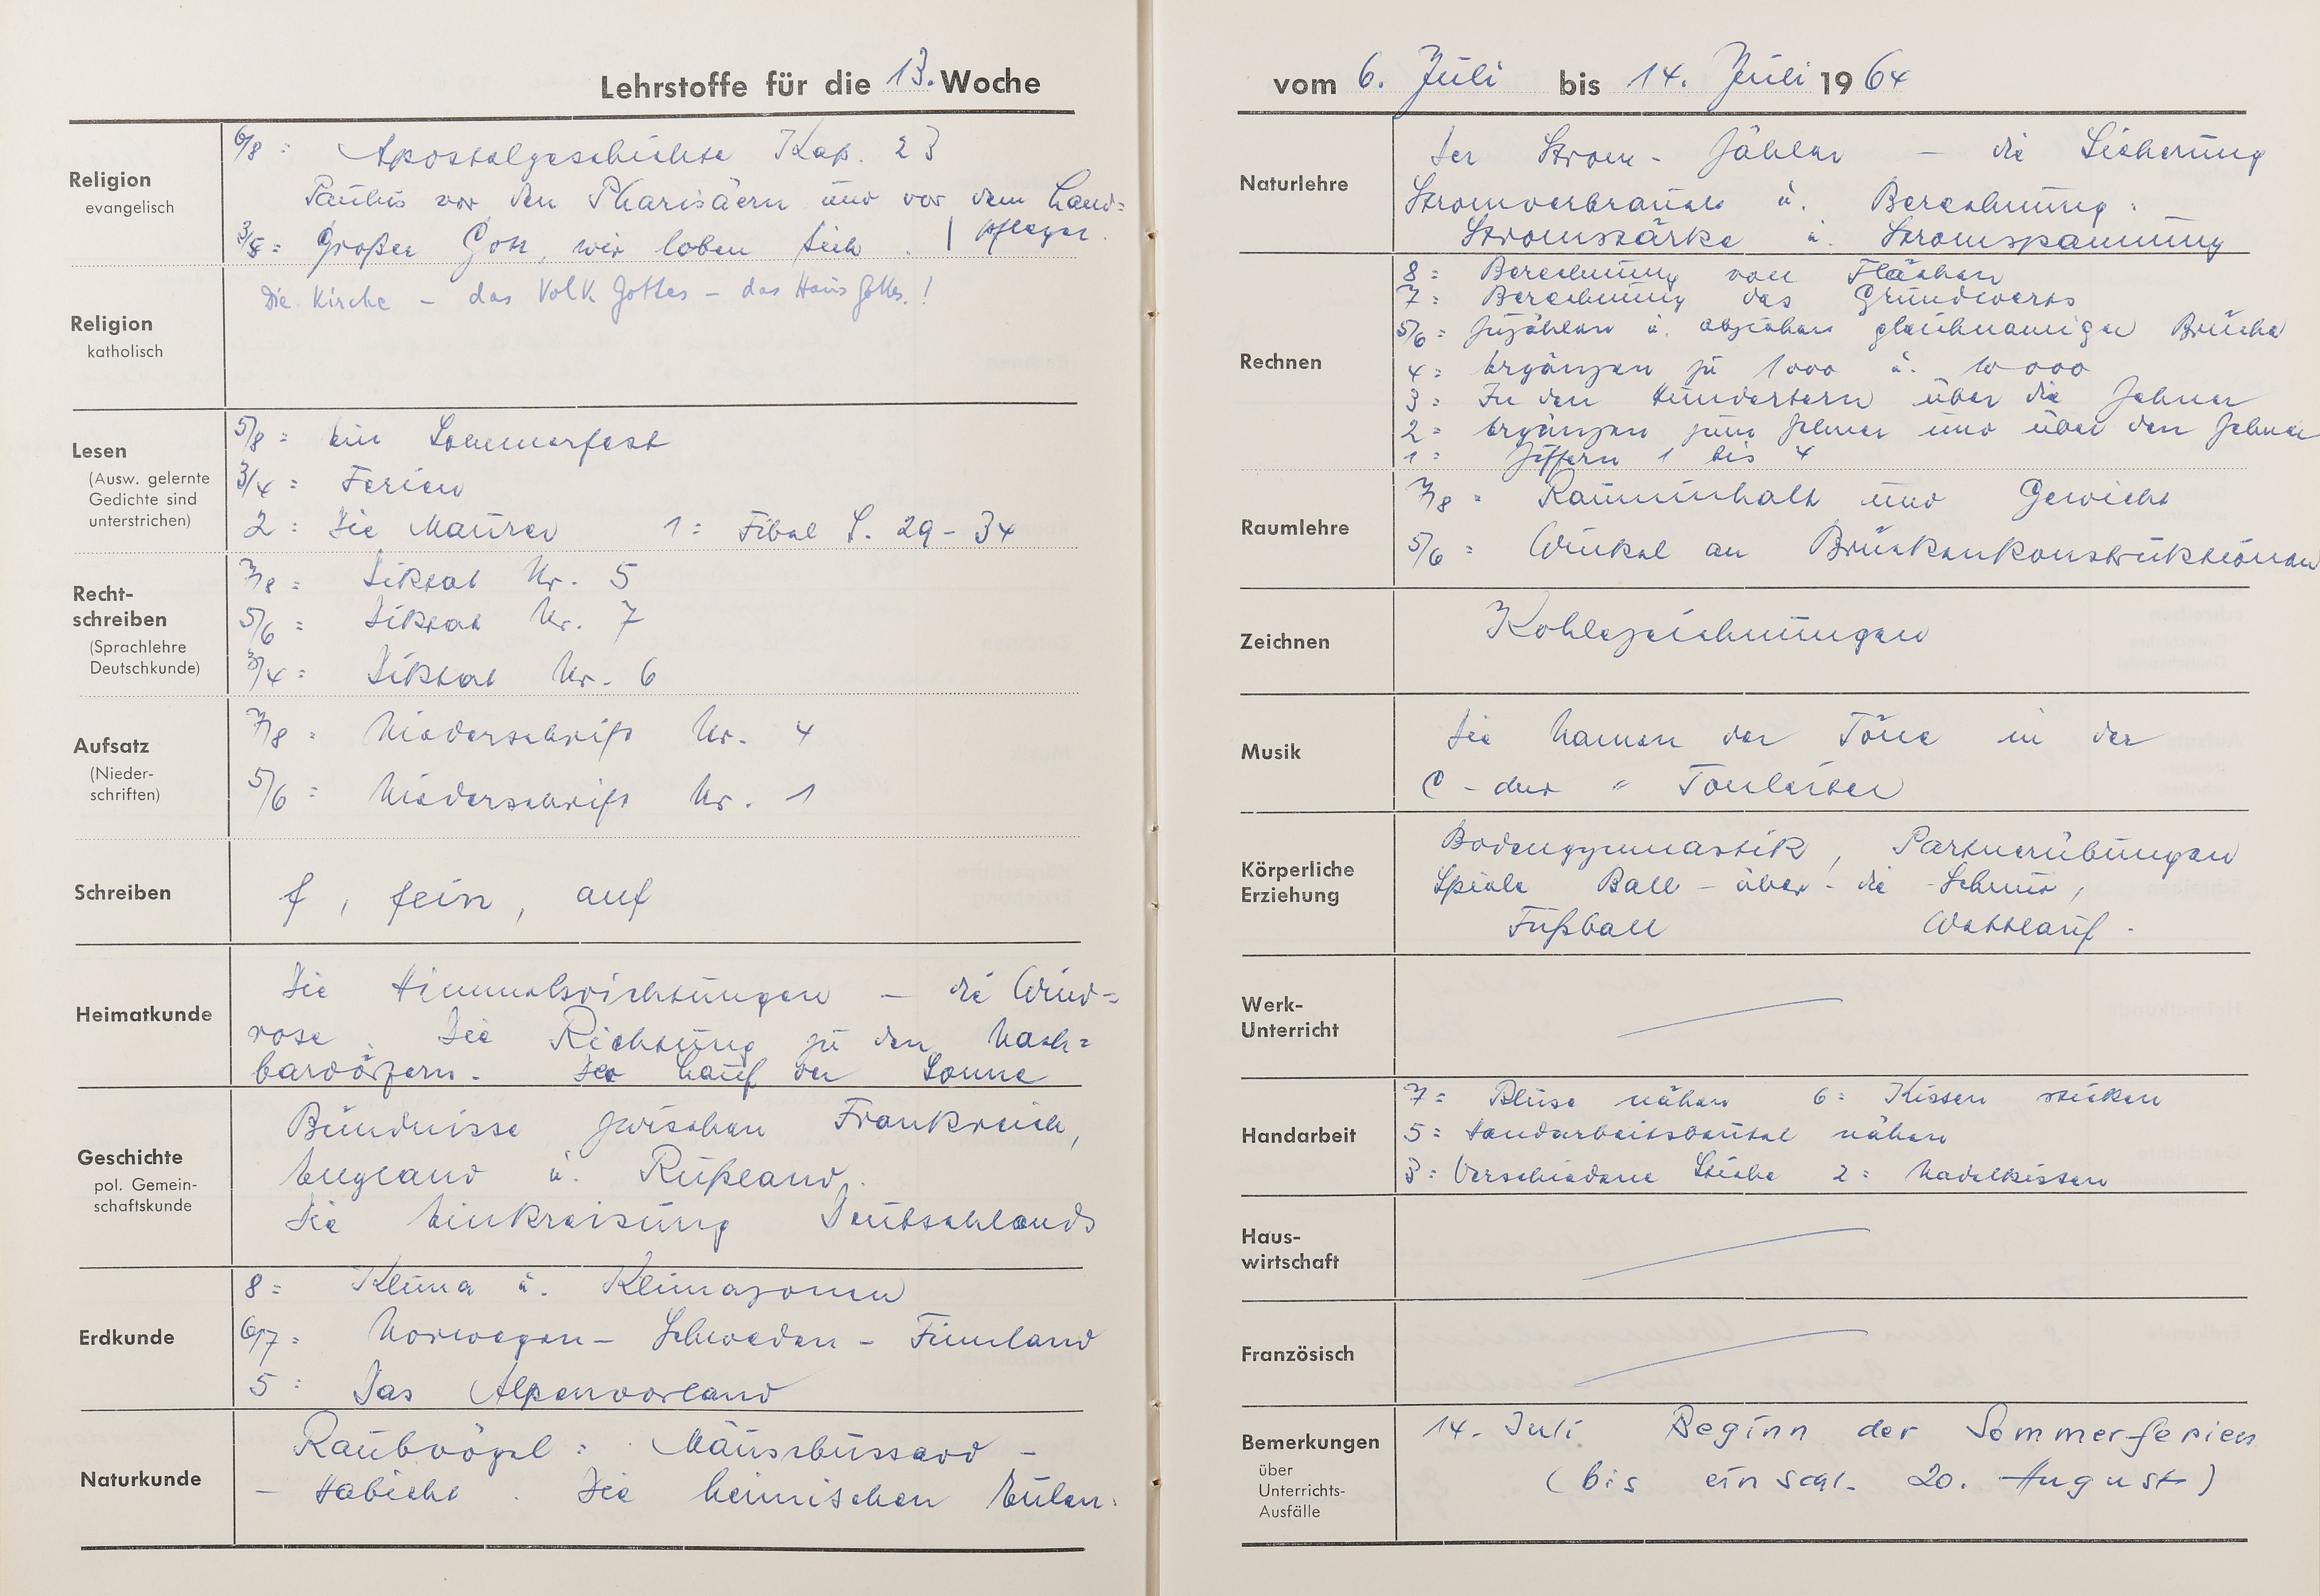 Lehrstoffe für die 13. Woche
Religion
evangelisch
6/8 = Apostelgeschichte Kap. 23
Paulus vor den Pharisäern und vor dem Land=
| pfleger.
3/5 = Großer Gott, wir loben dich.
Religion
katholisch
Die Kirche - das Volk Gottes - das Haus Gottes!
Lesen
(Ausw. gelernte
Gedichte sind
unterstrichen)
5/8 = Ein Sommerfest
3/4 = Ferien
2 = Die Maurer 1 = Fibel S. 29 - 34
Recht-
schreiben
(Sprachlehre
Deutschkunde)
7/8 = Diktat Nr. 5
5/6 = Diktat Nr. 7
3/4 = Diktat Nr. 6
Aufsatz
(Nieder-
schriften)
7/8 = Niederschrift Nr. 4
5/6 = Niederschrift Nr. 1
Schreiben
f, fein, auf
Heimatkunde
Die Himmelsrichtungen - die Wind=
rose. Die Richtung zu den Nach=
bardörfern. Der Lauf der Sonne
Geschichte
pol. Gemein-
schaftskunde
Bündnisse zwischen Frankreich,
England u. Rußland.
Die Einkreisung Deutschlands
Erdkunde
8 = Klima u. Klimazonen
6/7 = Norwegen - Schweden - Finnland
5 = Das Alpenvorland
Naturkunde
Raubvögel: Mäusebussard -
- Habicht. Die heimischen Eulen.
vom 6. Juli bis 14. Juli 1964
Naturlehre
Der Strom - Zähler - die Sicherung
Stromverbrauch u. Berechnung.
Stromstärke u. Stromspannung
Rechnen
8 = Berechnung von Flächen
7 = Berechnung des Grundwerts
5/6 = Zuzählen u. abziehen gleichnamiger Brüche
4 = Ergänzen zu 1000 u. 10000
3 = In den Hundertern über die Zehner
2 = Ergänzen zum Zehner und über den Zehner
1 = Ziffern 1 bis 4
Raumlehre
7/8 = Rauminhalt und Gewicht
5/6 = Winkel an Brückenkonstruktionen
Zeichnen
Kohlezeichnungen
Musik
Die Namen der Töne in der
C - dur = Tonleiter
Körperliche
Erziehung
Bodengymnastik, Partnerübungen
Spiele Ball - über - die - Schnur,
Fußball Wettlauf.
Werk-
Unterricht
Handarbeit
7 = Bluse nähen 6 = Kissen sticken
5 = Handarbeitsbeutel nähen
3 = Verschiedene Stiche 2 = Nadelkissen
Haus-
wirtschaft
Französisch
Bemerkungen
über
Unterrichts-
Ausfälle
14. Juli Beginn der Sommerferien
(bis einschl. 20. August)